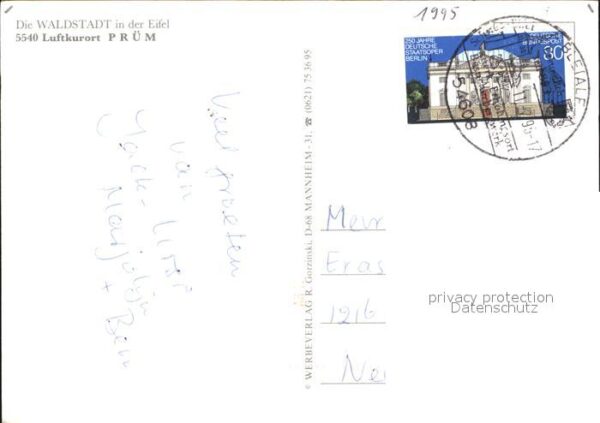 Die WALDSTADT in der Eifel
5540 Luftkurort PRÜM
1995
250 JAHRE
DEUTSCHE
STAATSOPER
BERLIN
80
BLEIALF
54608
Veel groeten
van
Jack - Lini
Marjolijn
+ Ben
© WERBEVERLAG R. Gorzinski, D-68 MANNHEIM - 31, ☎ (0621) 75 36 95
Mevr
Eras
1216
Ne
privacy protection
Datenschutz